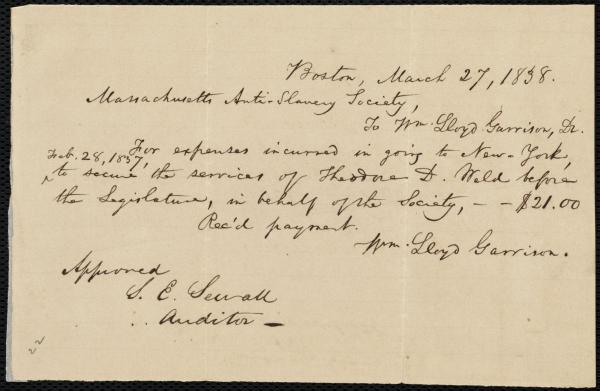 Boston, March 27, 1838.
Massachusetts Anti-Slavery Society,
To Wm. Lloyd Garrison, Dr.
Feb. 28, 1837, For expenses incurred in going to New-York,
^ to secure the services of Theodore D. Weld before
the Legislature, in behalf of the Society, - - $21.00
Rec'd payment.
Wm. Lloyd Garrison.
Approved
S. E. Sewall
Auditor -
22